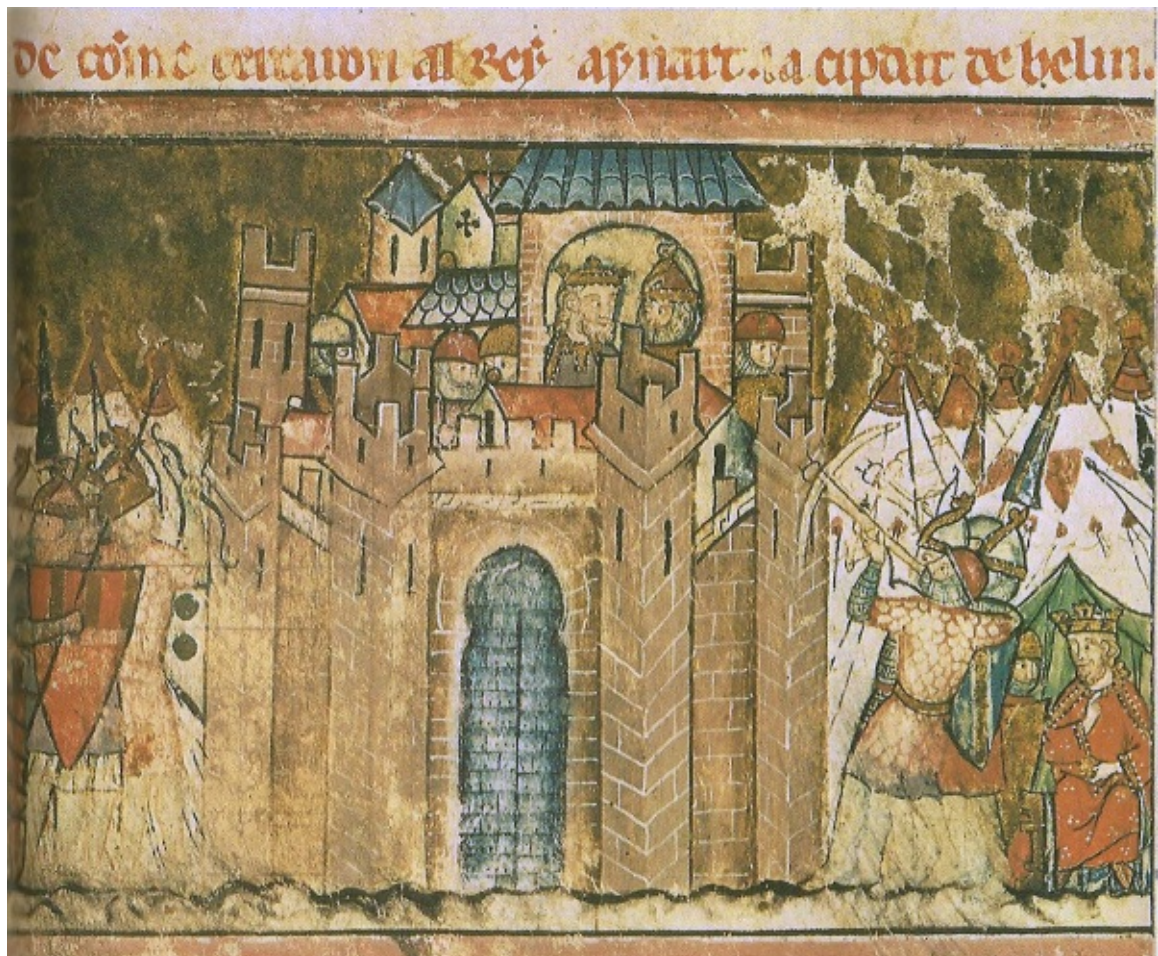 De cõmo cercaron al Rey aynart. la cipdat de belin.